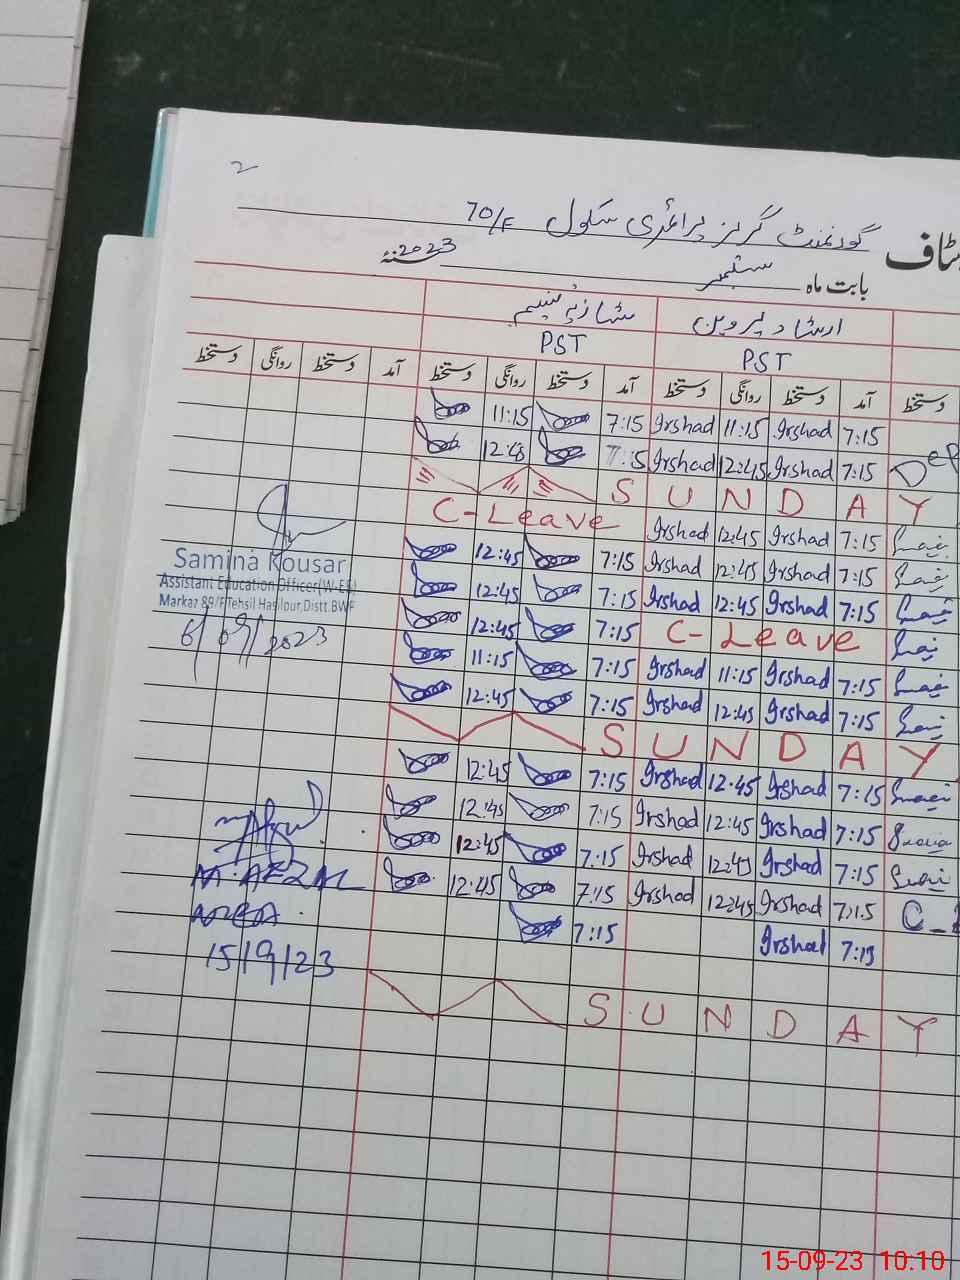 2
گورنمنٹ گرلز پرائمری سکول 70/F
ٹاف
بابت ماہ ستمبر 2023
ارشاد پروین
PST PST
دستخط آمد دستخط روانگی دستخط آمد دستخط روانگی دستخط آمد دستخط روانگی دستخط
7:15 Irshad 11:15 Irshad 7:15 11:15
7:15 Irshad 12:45 Irshad 12:45
S U N D A Y
7:15 Irshad 12:45 Irshad C-Leave
7:15 Irshad 12:45 Irshad 7:15 12:45
7:15 Irshad 12:45 Irshad 7:15 12:45
C-Leave 7:15 12:45
7:15 Irshad 11:15 Irshad 7:15 11:15
7:15 Irshad 12:45 Irshad 7:15 12:45
S U N D A Y
7:15 Irshad 12:45 Irshad 7:15 12:45
7:15 Irshad 12:45 Irshad 7:15 12:45
7:15 Irshad 12:45 Irshad 7:15 12:45
7:15 Irshad 12:45 Irshad 7:15 12:45
Irshad 7:15
S U N D A Y
Samina Kousar
Assistant Education Officer(W-EE)
Markaz 89/F Tehsil Hasilpur,Distt.BWP
6/09/2023
M.AFZAL
MEA
15/9/23
15-09-23 10.10